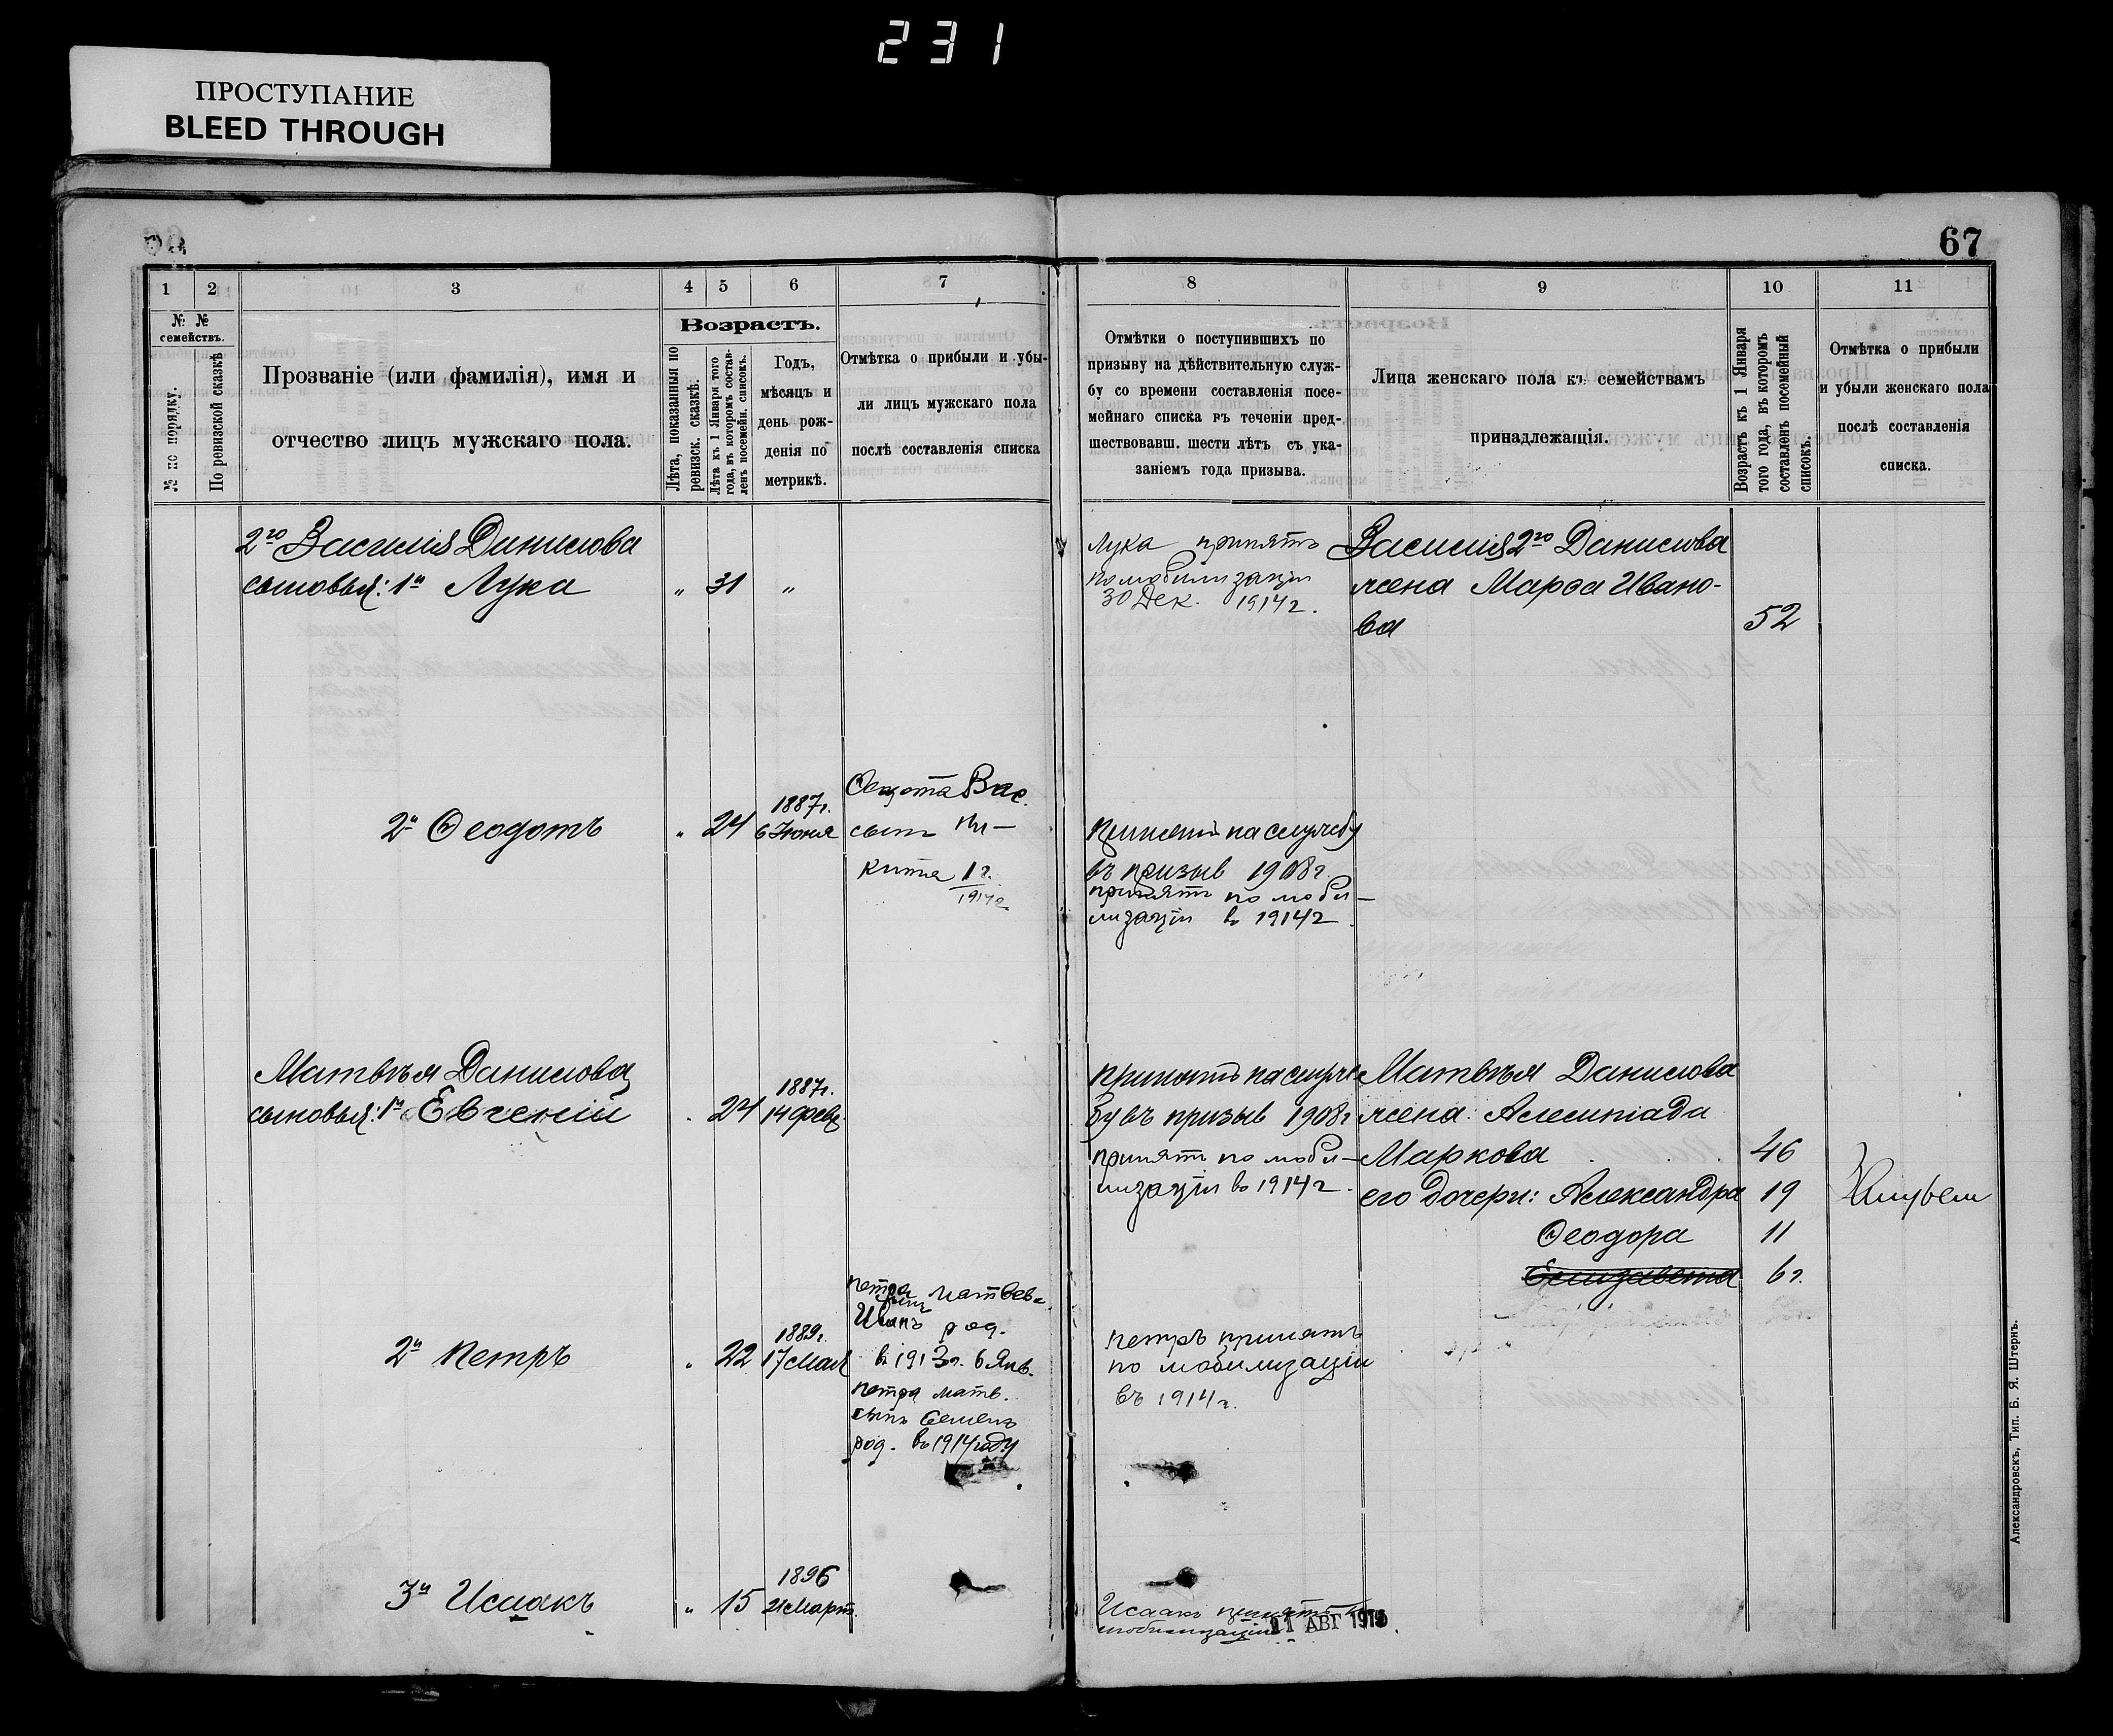 231
ПРОСТУПАНИЕ
BLEED THROUGH
67
1 2 3 4 5 6 7 8 9 10 11
№ № семействъ.
№ по порядку.
По ревизской сказкѣ
Прозваніе (или фамилія), имя и
отчество лицъ мужскаго пола.
Возрастъ.
Лѣта, показанныя по
ревизск. сказкѣ.
Лѣта къ 1 Января того
года, въ которомъ состав-
ленъ посемейн. списокъ.
Годъ,
мѣсяцъ и
день рож-
денія по
метрикѣ.
Отмѣтка о прибыли и убы-
ли лицъ мужскаго пола
послѣ составленія списка
Отмѣтки о поступившихъ по
призыву на дѣйствительную служ-
бу со времени составленія посе-
мейнаго списка въ теченіи пред-
шествовавш. шести лѣтъ съ ука-
заніемъ года призыва.
Лица женскаго пола къ семействамъ
принадлежащія.
Возрастъ къ 1 Января
того года, въ которомъ
составленъ посемейный
списокъ.
Отмѣтка о прибыли
и убыли женскаго пола
послѣ составленія
списка.
2го Василія Данилова
сыновья: 1й Лука " 31 "
Лука принятъ
по мобилизаціи
30 Дек. 1914 г.
Василія 2го Данилова
жена Марѳа Ивано-
ва 52
2й Ѳеодотъ " 24 1887г. 6 Іюня
Ѳедота Вас.
сынъ Ни-
кита 1 г.
1914 г
Принятъ на службу
въ призыв 1908 г
принятъ по моби-
лизаціи в 1914 г
Матвѣя Данилова
сыновья: 1й Евгеній " 24 1887г. 14 Февр.
Принятъ на служ-
бу въ призыв 1908 г
принятъ по моби-
лизаціи въ 1914 г.
Матвѣя Данилова
жена
Маркова 46
его дочери: Александра 19
Ѳеодора 11
Елизавета 6 г.
2й Петръ " 22 1889г. 17 Мая
Петра Матвев.
сынъ
Иванъ род.
в 1913г. 6 Янв.
Петра Матв.
сынъ Семенъ
род. въ 1914 году
Петръ принятъ
по мобилизаціи
въ 1914 г.
3й Исаакъ " 15 1896 21 Март.
Исаакъ принятъ п
мобилизаціи
АВГ
Александровскъ, Тип. Б. Я. Штернъ.